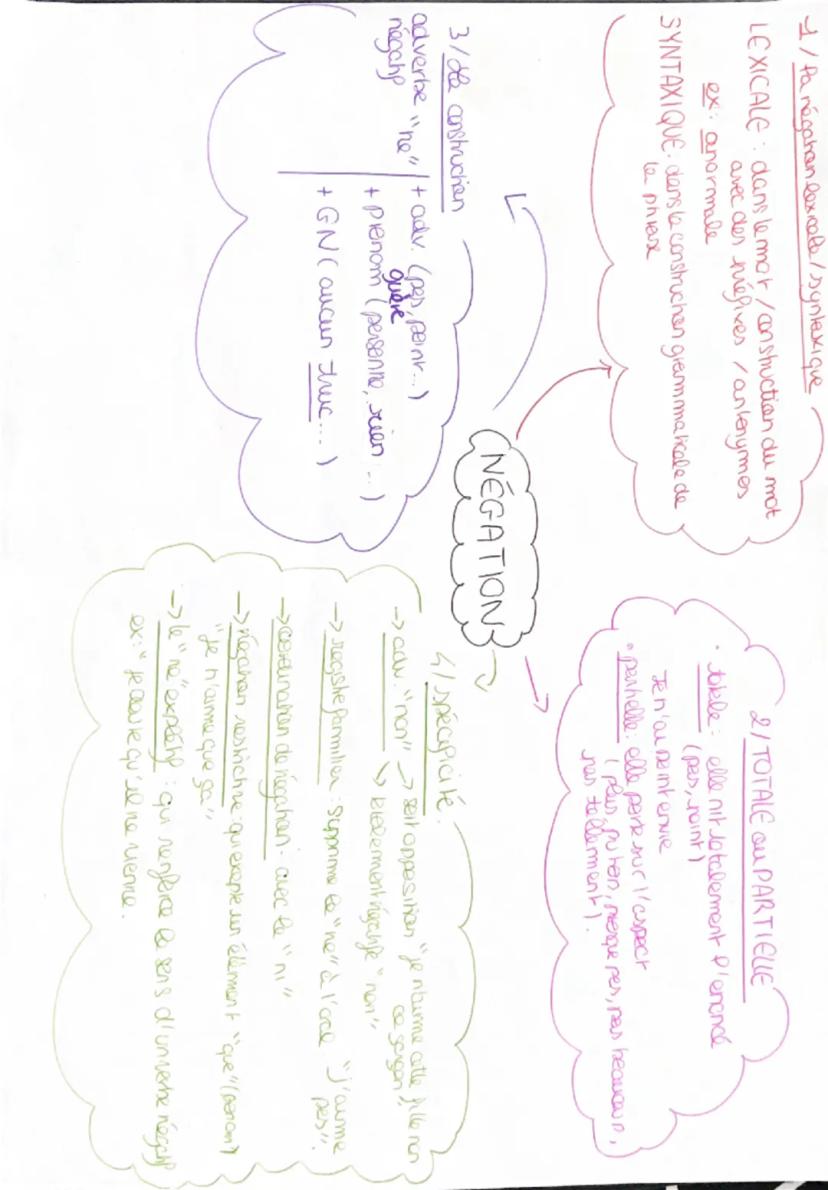 NÉGATION
1/ La négation lexicale / syntaxique
LEXICALE : dans le mot / construction du mot
avec des préfixes / antonymes
ex: anormale
SYNTAXIQUE : dans la construction grammaticale de
la phrase
2/ TOTALE ou PARTIELLE
• totale : elle nit totalement l'énoncé
(pas, point)
Je n'ai point envie
• partielle : elle porte sur l'aspect
(plus, presque pas, pas beaucoup,
pas tellement).
3/ La construction
adverbe "ne" + adv. (pas, point...)
négatif guère
+ pronom (personne, rien ...)
+ GN ( aucun truc ... )
4/ spécificité :
-> adv. "non" -> soit opposition "je n'aime cette fille non
ce garçon
-> négatif "non"
-> registre familier : supprime le "ne" à l'oral "j'aime
pas".
-> coordination de négation : avec le "ni"
-> négation restrictive : qui excepte un élément "que" (pronom)
"je n'aime que ça"
-> le "ne" explétif : qui renforce le sens d'un verbe négatif
ex : "je doute qu'il ne vienne.